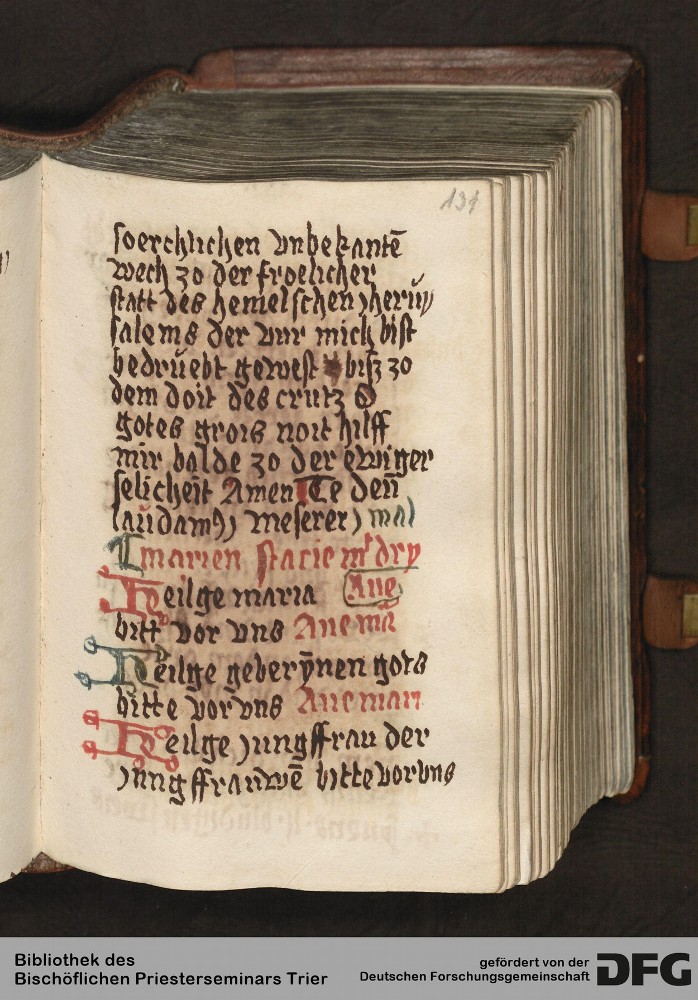 131
soerchlichen vnbekantē
wech zo der froelicher
statt des hemelschen jherū
salems der vur mich bist
bedrůebt gewest bisz zo
dem doit des crutz O
gotes grois noit hilff
mir balde zo der ewiger
selicheit Amen Te deū
laudamꝰ meserere mal
marien stacie mt dry
Heilge maria Aue
bitt vor vns Aue mā
Heilge geberÿnen gots
bitte vor vns Aue mari
Heilge jungffrau der
jungffrauwē bitte vor vns
Bibliothek des
Bischöflichen Priesterseminars Trier
gefördert von der
Deutschen Forschungsgemeinschaft
DFG